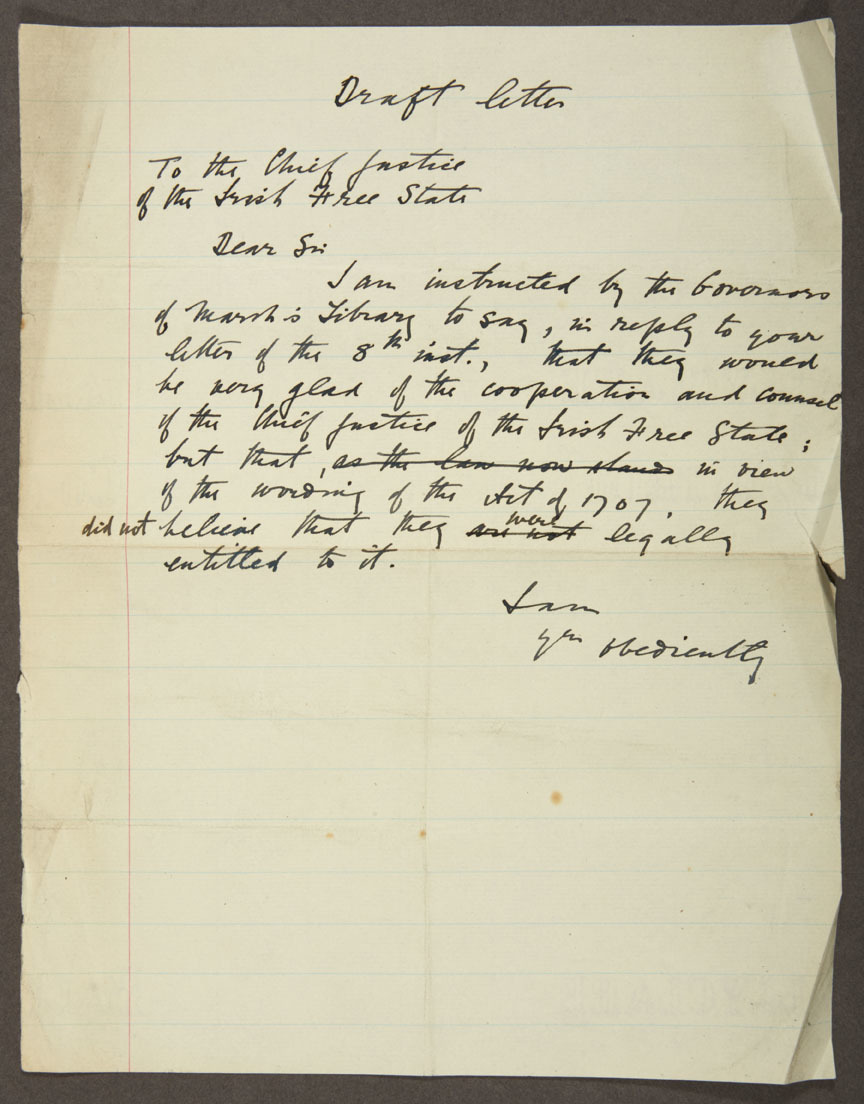 Draft letter
To the Chief Justice
of the Irish Free State
Dear Sir
I am instructed by the Governors
of Marsh's Library to say, in reply to your
letter of the 8th inst., that they would
be very glad of the cooperation and counsel
of the Chief Justice of the Irish Free State;
but that, as the law now stands in view
of the wording of the Act of 1707, they
did not believe that they are not were legally
entitled to it.
I am
yrs obediently